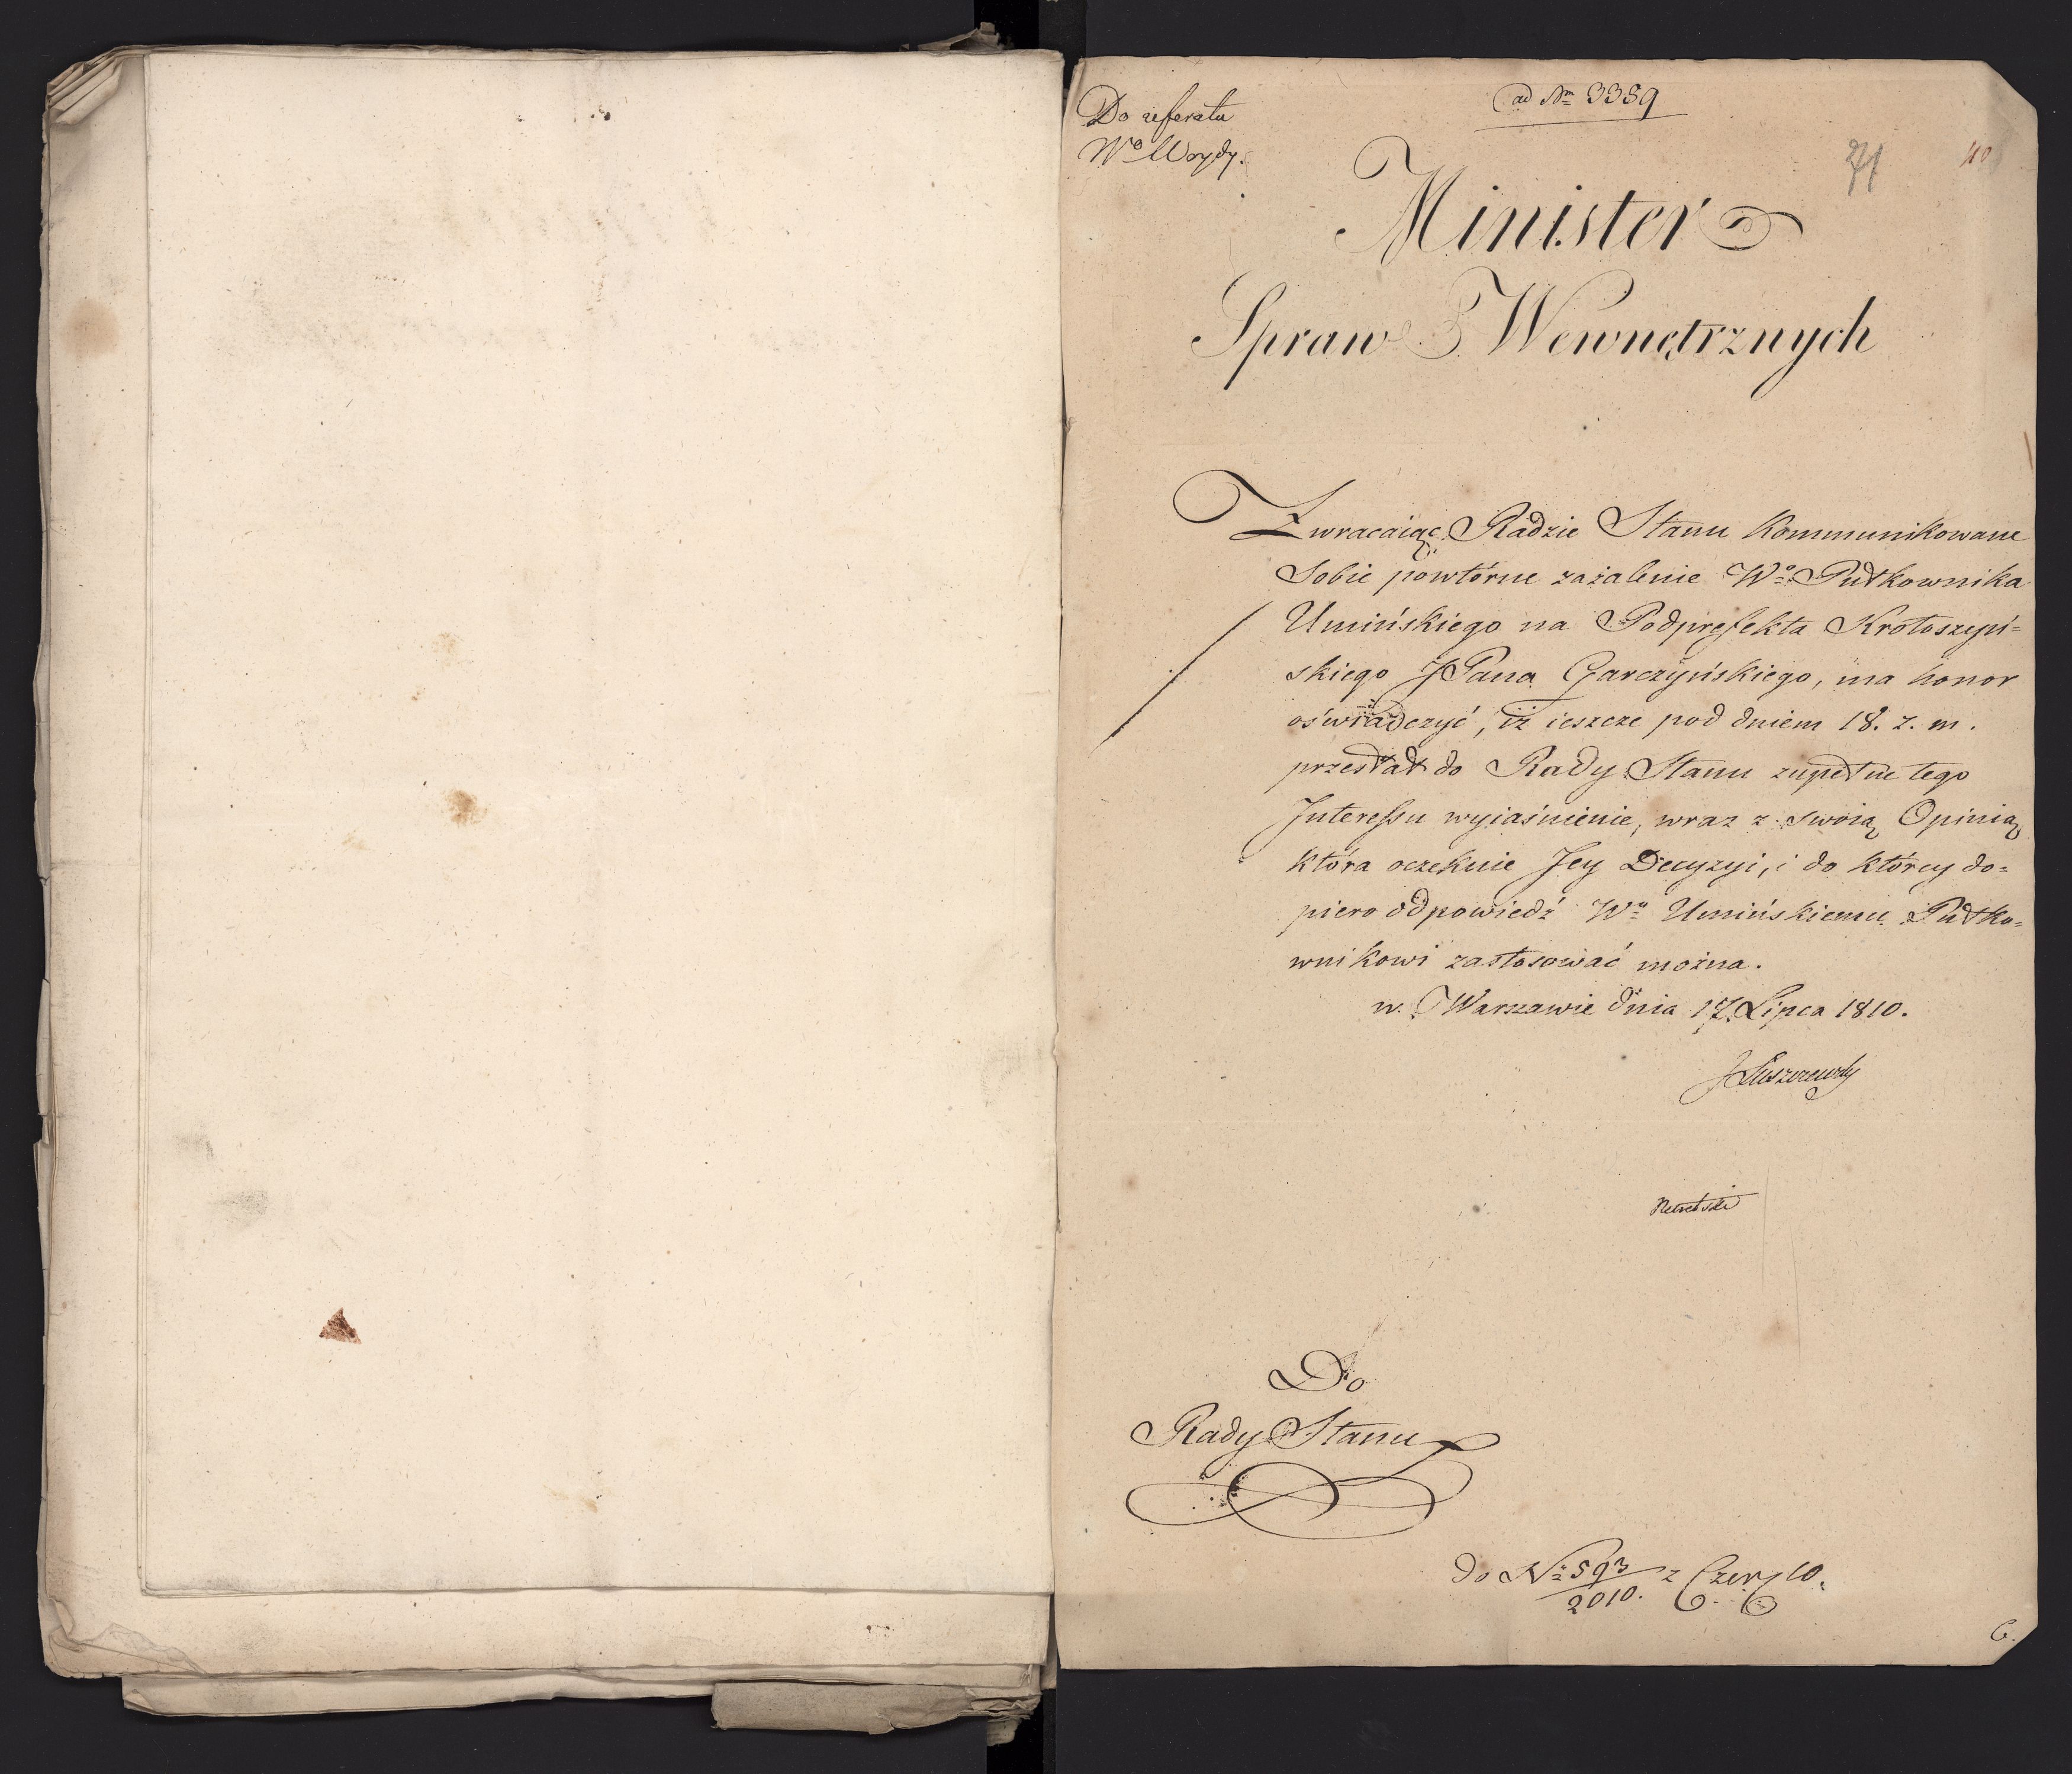 Do referatu
Wo Woydy.
ad Nrm 3359
71
40
Minister
Spraw Wewnętrznych
Zwracaiąc Radzie Stanu Kommunikowane
Sobie powtórne zażalenie Wo Pułkownika
Umińskiego na Podprefekta Krotoszyń=
skiego JPana Garczyńskiego, ma honor
oświadczyć, iż ieszcze pod dniem 18. z. m.
przesłał do Rady Stanu zupełne tego
Interessu wyiaśnienie, wraz z swoią Opinią
która oczekuie Jey Decyzyi, i do którey do=
piero odpowiedź Wu Umińskiemu Pułko=
wnikowi zastosować można.
w Warszawie dnia 17. Lipca 1810.
JŁuszczewsky
Do
Rady Stanu
do No 593/2010. z Czer. 10.
6.